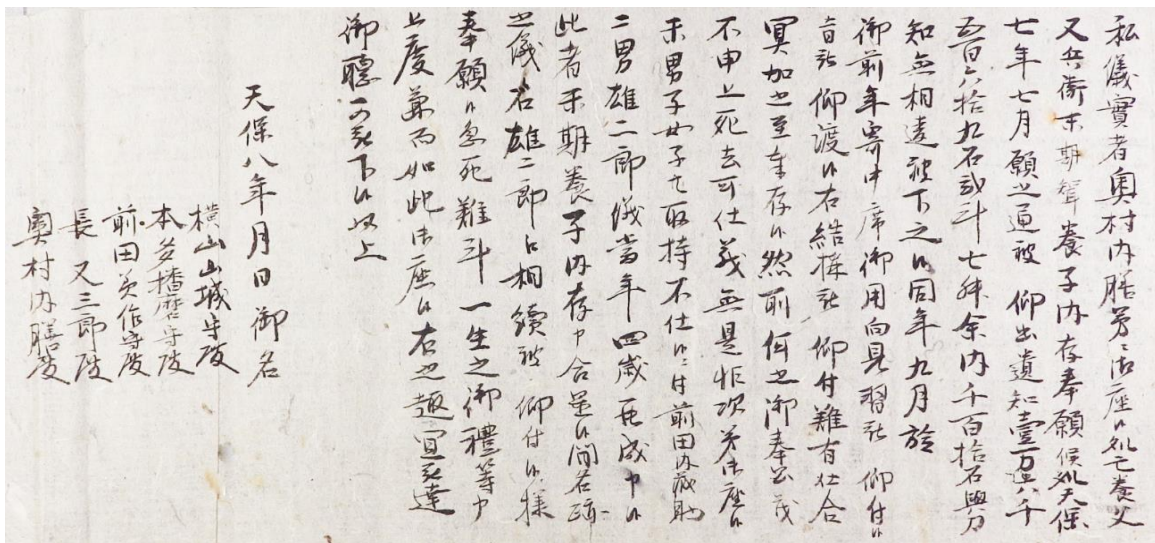 私儀實者奥村内膳弟ニ而御座候処亡養父
又兵衛末期聟養子内存奉願候処天保
七年七月願之通被　仰出遺知壹万八千
五百六拾九石貳斗七舛余内千百拾石與力
知無相違被下之候同年九月於
御前年寄中席御用向見習被　仰付候
旨被　仰渡候右結構被　仰付難有仕合
冥加也至奉存候然前何之御奉公茂
不申上死去可仕義無是非次第御座候
未男子女子も取持不仕候ニ付前田内蔵助
二男雄二郎儀當年四歳罷成申候
此者末期養子内存申合置候間名跡
之儀右雄二郎江相續被　仰付候様
奉願候急死難斗一生之御禮等申
上度兼而如此御座候右之趣宜被達
御聴可被下候以上
天保八年月日御名
横山山城守殿
本多播磨守殿
前田美作守殿
長　又三郎殿
奥村内膳殿